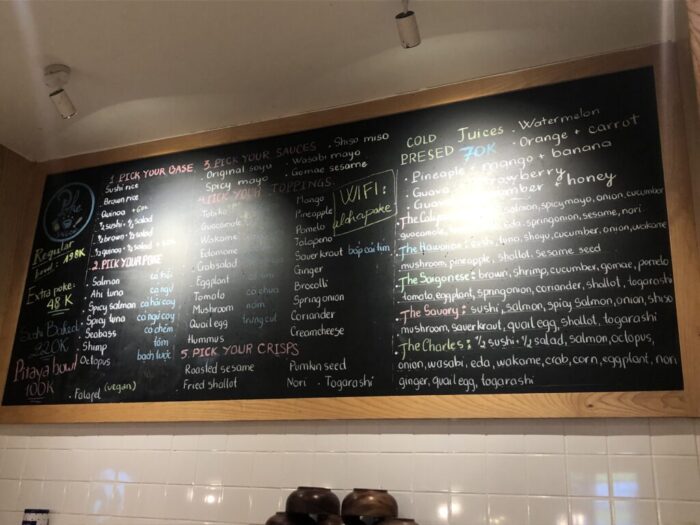 Poke
Regular
bowl: 198K
Extra poke:
48 K
Sushi Baked
220K
Pitaya bowl
100K
1. PICK YOUR BASE
Sushi rice
Brown rice
Quinoa
½ sushi ½ salad
½ brown ½ salad
½ quinoa ½ salad
2. PICK YOUR POKE
Salmon cá hồi
Ahi tuna cá ngừ
Spicy salmon cá hồi cay
Spicy tuna cá ngừ cay
Seabass cá chẽm
Shrimp tôm
Octopus bạch tuộc
Falafel (vegan)
3. PICK YOUR SAUCES
Original soyu
Spicy mayo
Shiso miso
Wasabi mayo
Gomae sesame
4. PICK YOUR TOPPINGS
Tobiko
Guacamole
Wakame
Edamame
Crabsalad
Eggplant
Tomato cà chua
Mushroom nấm
Quail egg trứng cút
Hummus
Mango
Pineapple
Pomelo
Jalapeno
Sauerkraut bắp cải tím
Ginger
Brocolli
Spring onion
Coriander
Creamcheese
WIFI:
alohapoke
5 PICK YOUR CRISPS
Roasted sesame
Fried shallot
Pumkin seed
Nori . Togarashi
COLD Juices
PRESED 70K
Watermelon
Orange + carrot
Pineapple + mango + banana
Guava + strawberry
Guava + cucumber + honey
salmon, spicy mayo, onion, cucumber
guacamole, eda, springonion, sesame, nori
The Hawaiian: sushi, tuna, shoyu, cucumber, onion, wakame
mushroom, pineapple, shallot, sesame seed
The Saigonese: brown, shrimp, cucumber, gomae, pomelo
tomato, eggplant, springonion, coriander, shallot, togarashi
The Savory: sushi, salmon, spicy salmon, onion, shiso
mushroom, sauerkraut, quail egg, shallot, togarashi
The Charles: ½ sushi ½ salad, salmon, octopus,
onion, wasabi, eda, wakame, crab, corn, eggplant, nori
ginger, quail egg, togarashi